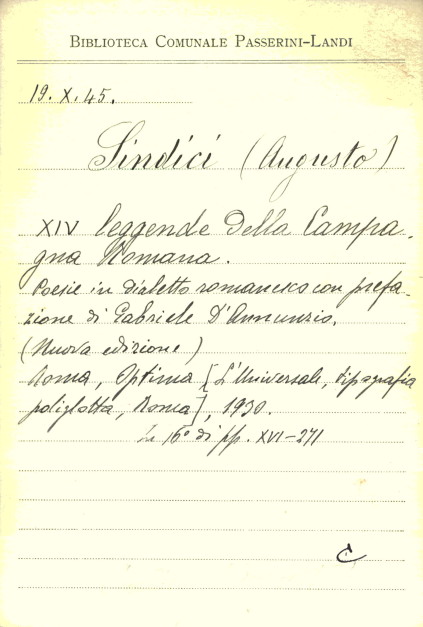 BIBLIOTECA COMUNALE PASSERINI-LANDI
19.X.45.
Sindici (Augusto)
XIV leggende della Campa-
gna Romana.
Poesie in dialetto romanesco con prefa-
zione di Gabriele D'Annunzio.
(Nuova edizione)
Roma, Optima [L'Universale, tipografia
poliglotta, Roma], 1930.
In 16° di pp. XVI-271
C